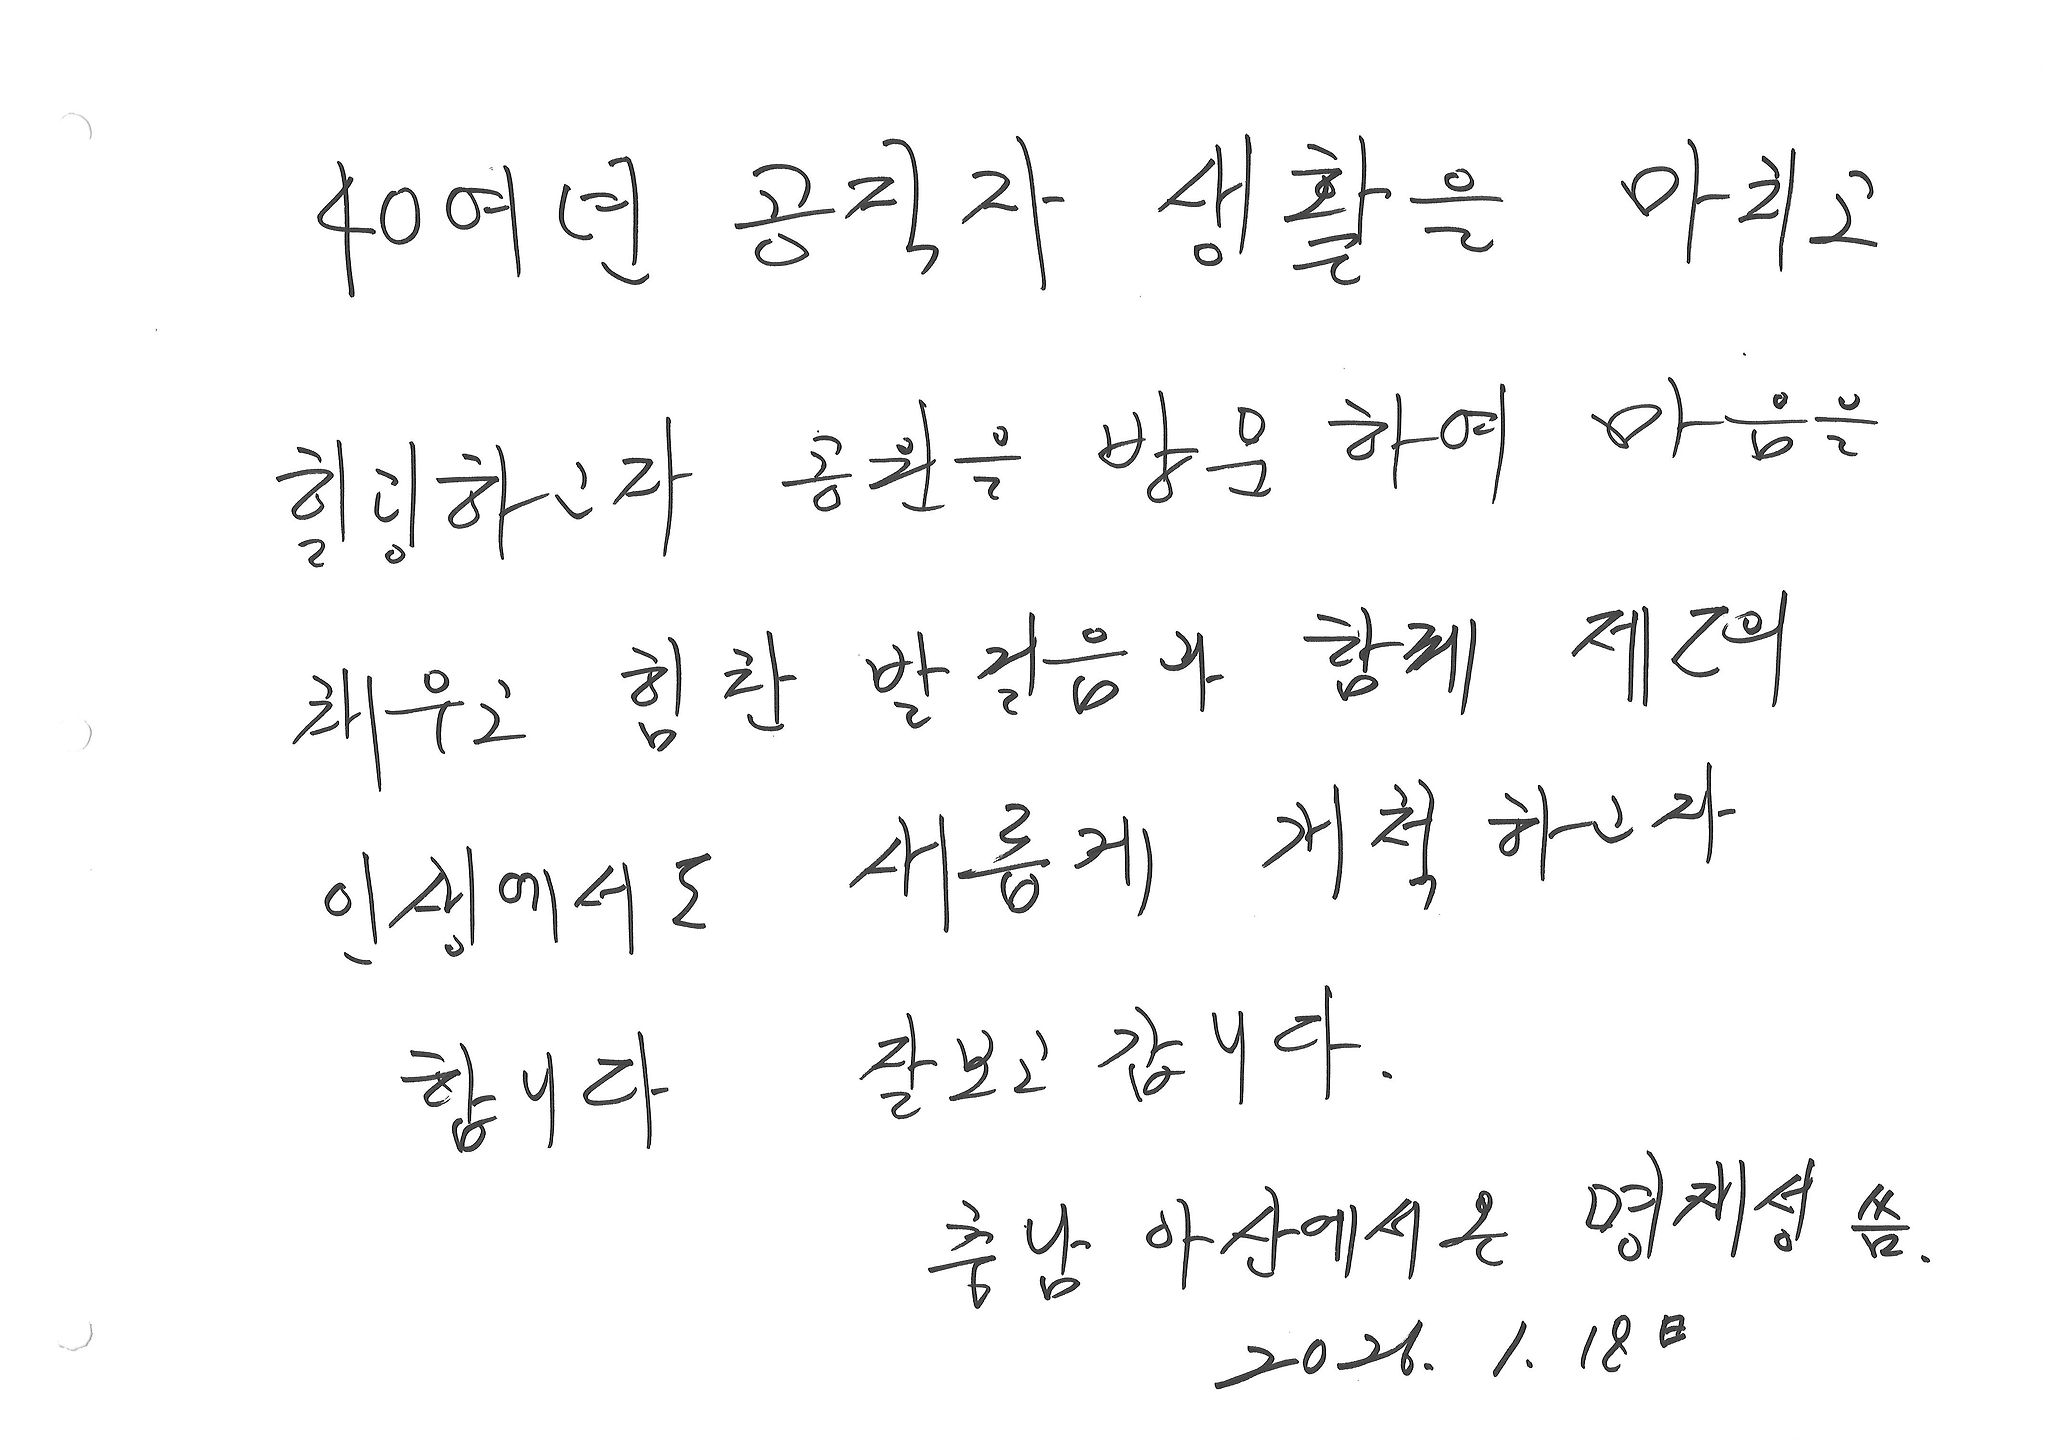 40여년 공직자 생활을 마치고
힐링하고자 공원을 방문하여 마음을
채우고 힘찬 발걸음과 함께 제2의
인생에서도 새롭게 개척하고자
합니다 잘보고 갑니다.
충남 아산에서온 명재성 씀.
2026. 1. 18日